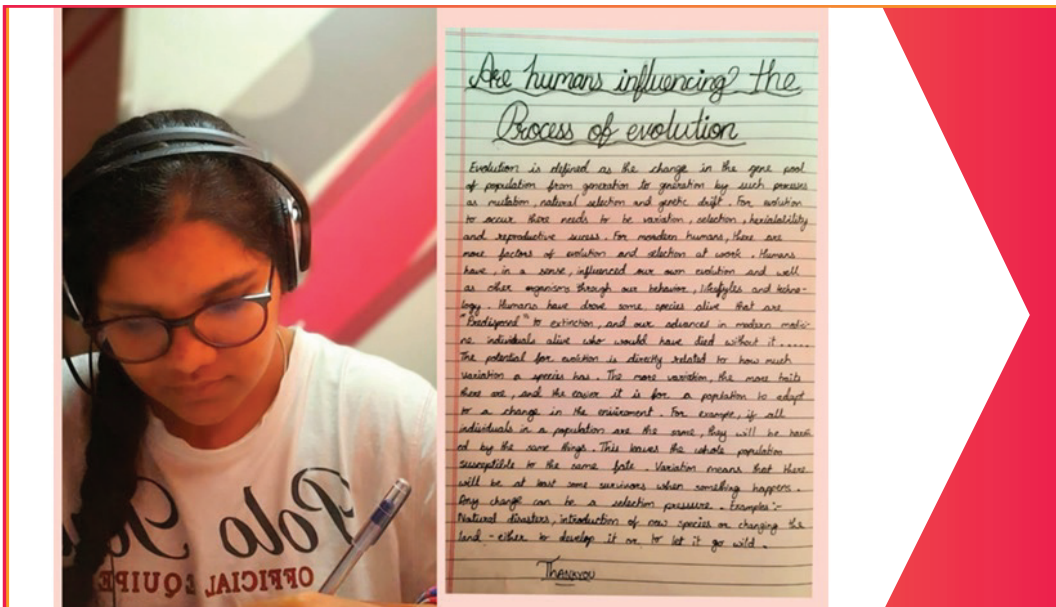 Are humans influencing? the
Process of evolution
Evolution is defined as the change in the gene pool
of population from generation to generation by such processes
as mutation, natural selection and genetic drift. For evolution
to occur there needs to be variation, selection,
and reproductive sucess. For mordern humans, there are
more factors of evolution and selection at work. Humans
have, in a sense, influenced our own evolution and well
as other organisms through our behavior, lifestyles and techno-
logy. Humans have drove some species alive that are
to extinction, and our advances in modern medici-
ne individuals alive who would have died without it......
The potential for evolution is directly related to how much
variation a species has. The more variation, the more traits
there are, and the easier it is for a population to adapt
to a change in the enviroment. For example, if all
individuals in a population are the same, they will be harm
ed by the same things. This leaves the whole population
susceptible to the same fate. Variation means that there
will be at least some survivors when something happens.
Any change can be a selection pressure. Examples:-
Natural disasters, introduction of new species or changing the
land - either to develop it or to let it go wild.
THANKYOU
Polo
OFFICIAL EQUIPE